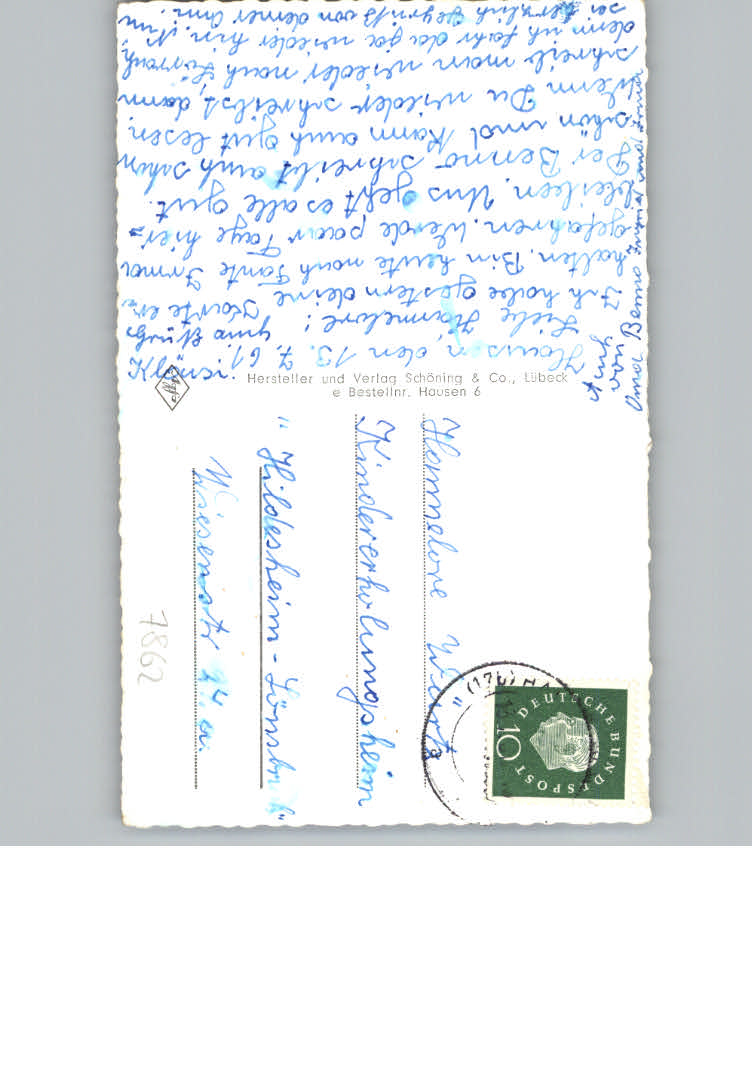 Hausen, den 13. 7. 61.
Liebe Hannelore!
Ich habe gestern deine Karte er-
halten. Bin heute nach Tante Irma
gefahren. Werde paar Tage hier-
bleiben. Uns geht es alle gut.
Der Benno schreibt auch schon
schön und kann auch gut lesen.
Wenn Du wieder schreibst, dann
schreib man wieder nach Lörrach,
denn ich fahr da ja wieder hin. Nun
sei herzlich gegrüßt von deiner Omi.
Oma Benno Ingrid und Irma
von
Hersteller und Verlag Schöning & Co., Lübeck
e Bestellnr. Hausen 6
Hannelore
Kindererholungsheim
"Hildesheim - Lönsbruch"
Wiesenstr
7862
(17b) HA
DEUTSCHE BUNDESPOST
10